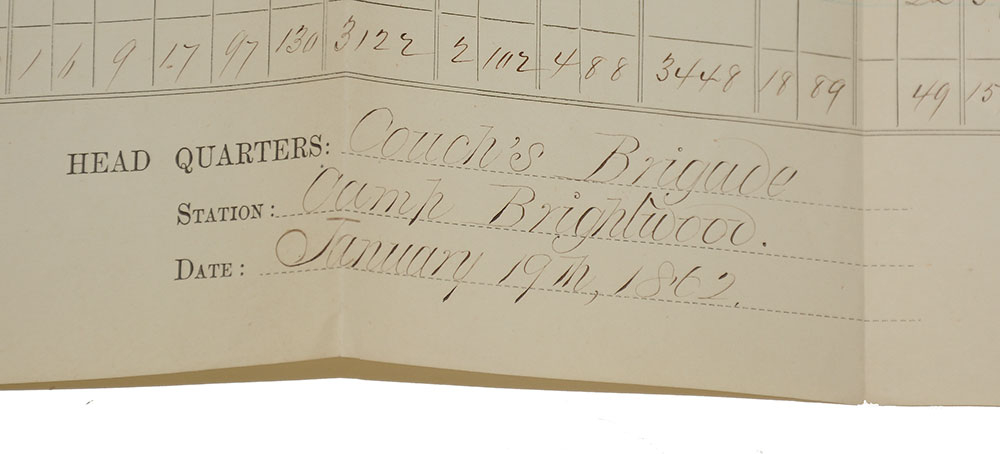 1 6 9 17 97 130 3122 2 102 488 3448 18 89 49 15
HEAD QUARTERS: Couch's Brigade
STATION: Camp Brightwood.
DATE: January 19th, 1862.